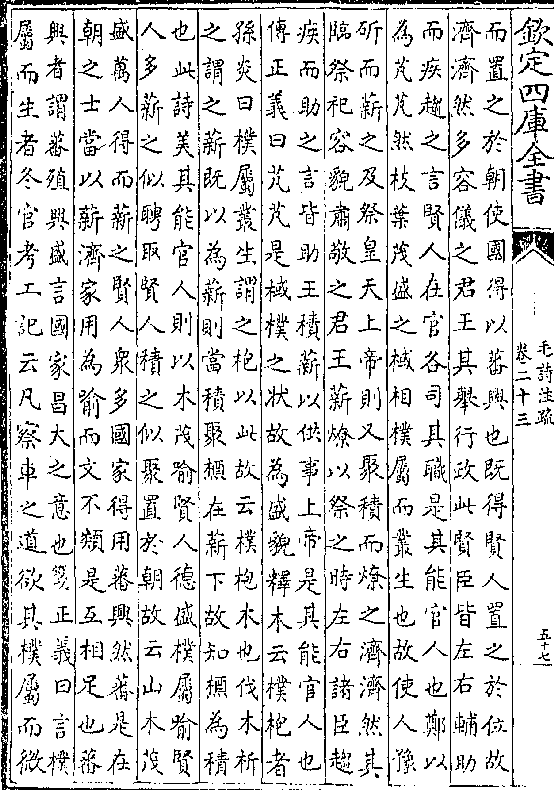 欽定四庫全書
毛詩注疏
卷二十三
五十七
而置之於朝使國得以蕃興也既得賢人置之於位故
濟濟然多容儀之君王其舉行政此賢臣皆左右輔助
而疾趨之言賢人在官各司其職是其能官人也鄭以
為芃芃然枝葉茂盛之棫相樸屬而叢生也故使人豫
斫而薪之及祭皇天上帝則又聚積而燎之濟濟然其
臨祭祀容貌肅敬之君王薪燎以祭之時左右諸臣趨
疾而助之言皆助王積薪以供事上帝是其能官人也
傳正義曰芃芃是棫樸之狀故為盛貌釋木云樸枹者
孫炎曰樸屬叢生謂之枹以此故云樸枹木也伐木析
之謂之薪既以為薪則當積聚槱在薪下故知槱為積
也此詩美其能官人則以木茂喻賢人德盛樸屬喻賢
人多薪之似聘取賢人積之似聚置於朝故云山木茂
盛萬人得而薪之賢人衆多國家得用蕃興然蕃是在
朝之士當以薪濟家用為喻而文不類是互相足也蕃
興者謂蕃殖興盛言國家昌大之意也箋正義曰言樸
屬而生者冬官考工記云凡察車之道欲其樸屬而微